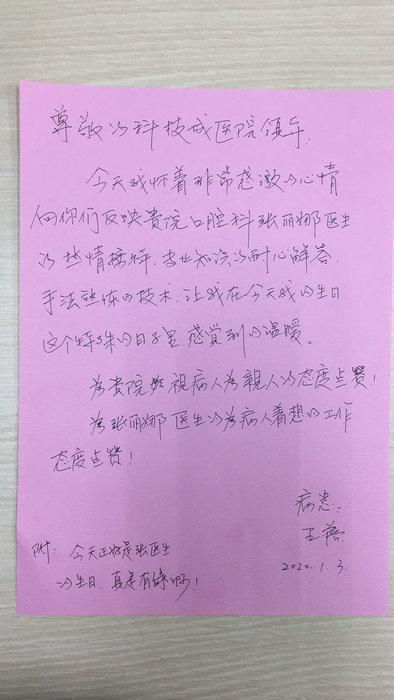 尊敬的科技城医院领导:
今天我怀着非常感激的心情
向你们反映贵院口腔科张丽娜医生
的热情接待,专业知识的耐心解答,
手法熟练的技术,让我在今天我的生日
这个特殊的日子里感觉到的温暖。
为贵院视病人为親人的态度点赞!
为张丽娜医生的为病人着想的工作
态度点赞!
病患:
王
2020.1.3.
附: 今天正好是张医生
的生日,真是有缘啊!